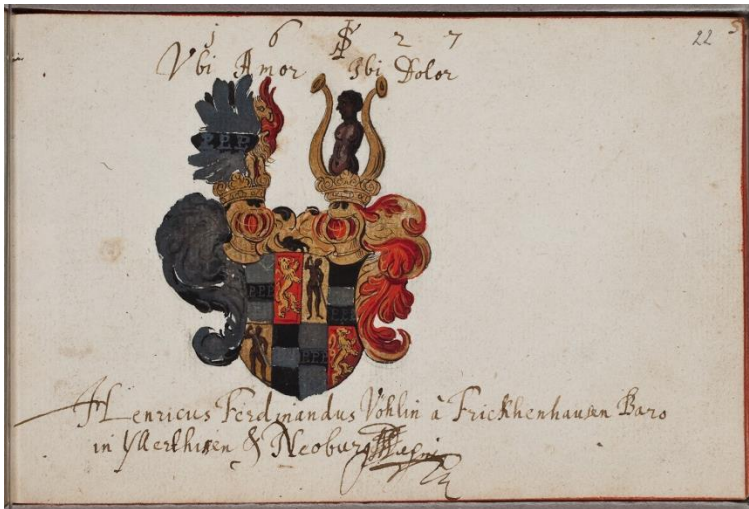 1 6 2 7
22
Vbi Amor Ibi Dolor
PPP
PPP
PPP
PPP
Henricus Ferdinandus Vöhlin à Frickhenhausen Baro
in Yllerthissen & Neoburg